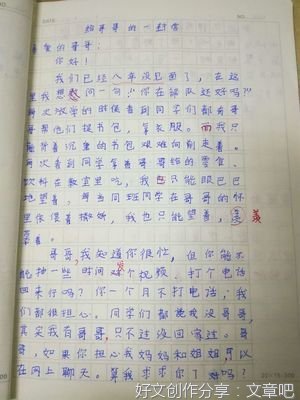 给哥哥的一封信
亲爱的哥哥:
你好!
我们已经八年没见面了,在这
里我想问一句:“你在部队还好吗?”
每次放学的时候看到同学们都有哥
哥帮他们提书包,拿衣服。而我只
能背着沉重的书包艰难向前走着。
每次看到同学拿着哥哥给的零食、
饮料在教室里吃,我也只能眼巴巴
地望着,每当同班同学在哥哥的怀
里依偎着撒娇,我也只能望着,羡
慕着。
哥哥,我知道你很忙,但你能不
能抽一些时间发个视频、打个电话
回来行吗?你一个月不打电话,我
们都很担心。同学们都说我没哥哥,
其实我有哥哥,只不过没回家过。哥
哥,如果你担心我妈妈和姐姐,可以
在网上聊天。算我求求你了好吗?
好文创作分享:文章吧